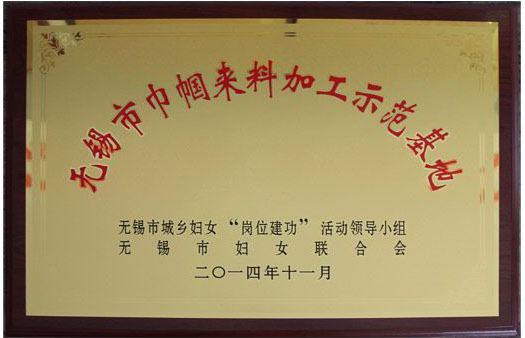 无锡市巾帼来料加工示范基地
无锡市城乡妇女“岗位建功”活动领导小组
无锡市妇女联合会
二〇一四年十一月